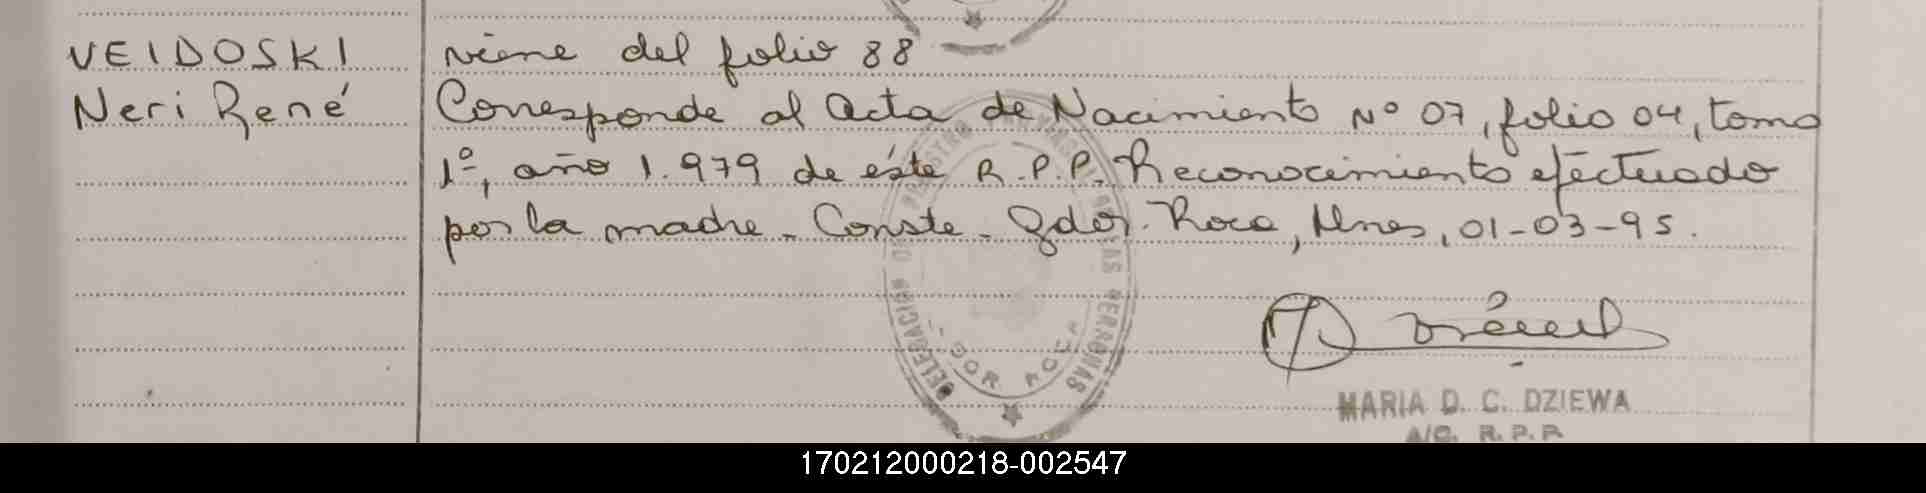 VEIDOSKI
Neri René
viene del folio 88
Corresponde al Acta de Nacimiento Nº 07, folio 04, tomo
1º, año 1.979 de éste R.P.P. Reconocimiento efectuado
por la madre - Conste - Gdor. Roca, Mnes, 01-03-95.
DELEGACION
GDOR ROCA
DE LAS PERSONAS
MARIA D. C. DZIEWA
A/C. R.P.P.
170212000218-002547